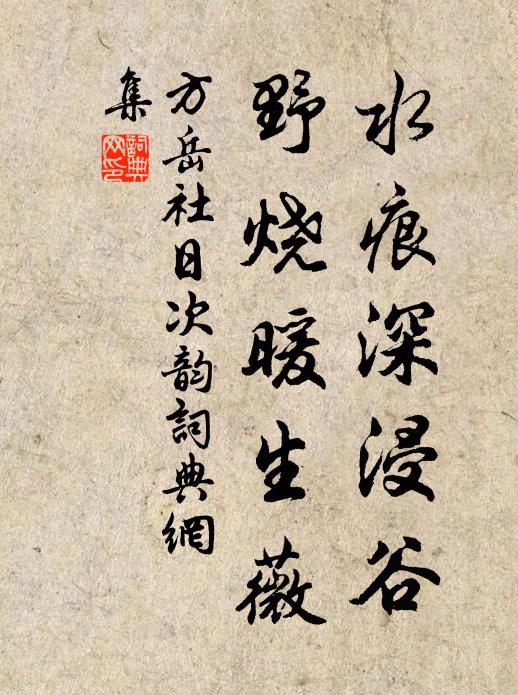 水痕深浸谷
野烧暖生薇
方岳社日次韵詞典網
集
詞典
网印